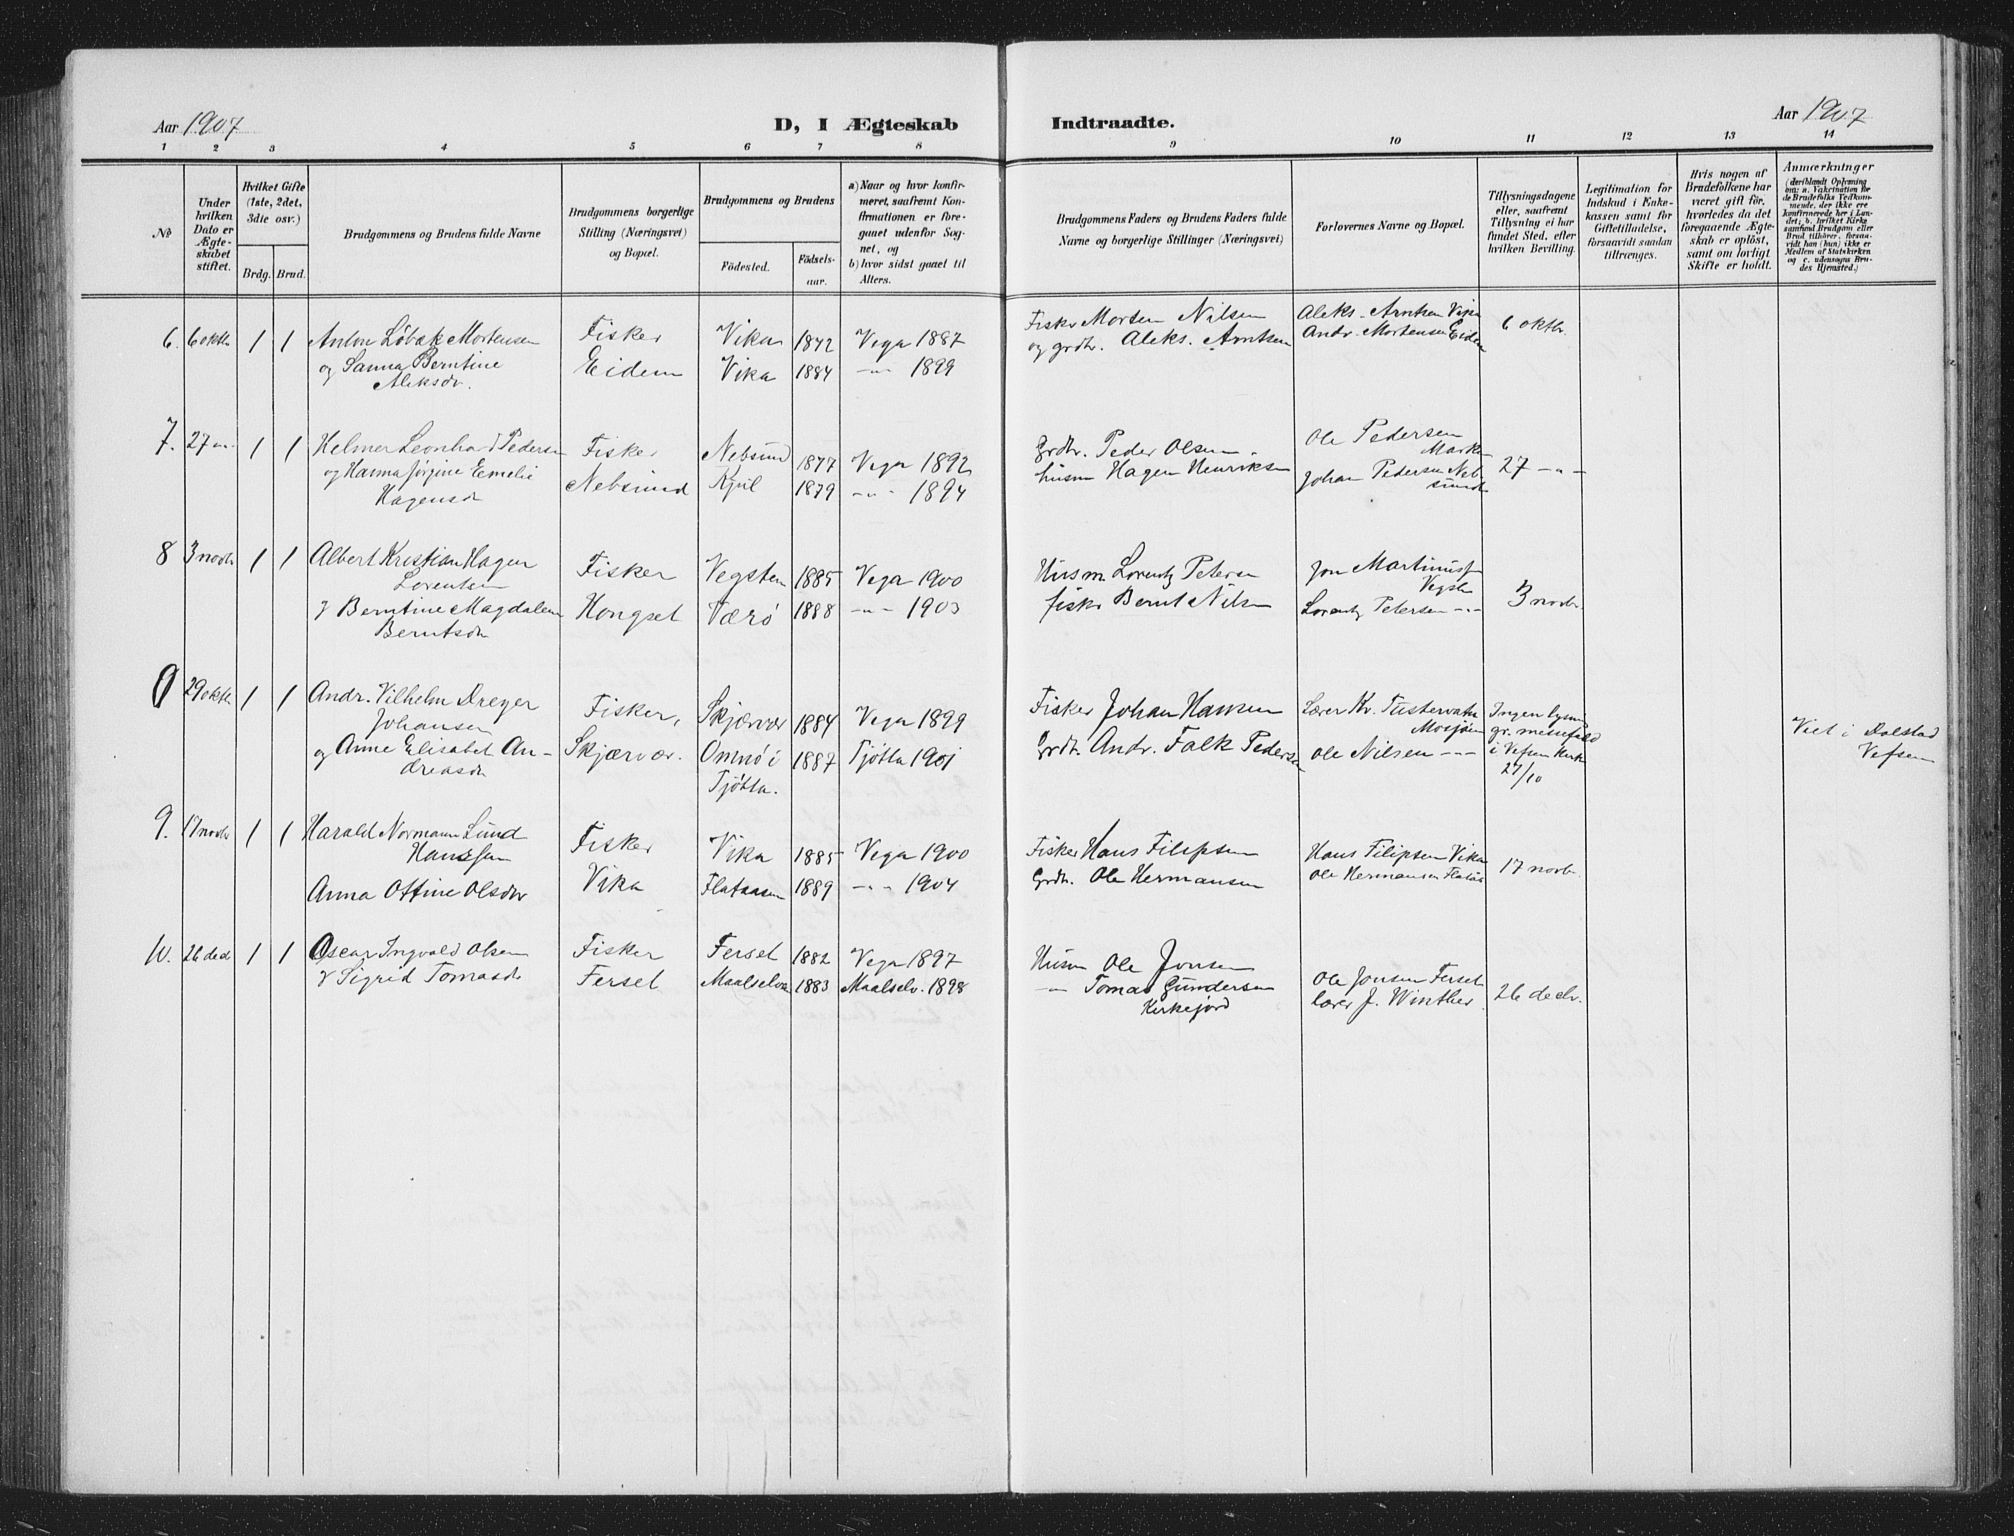 Aar 1907
D, I Ægteskab
Indtraadte.
Aar 1907
1 2 3 4 5 6 7 8 9 10 11 12 13 14
№
Under
hvilken
Dato er
Ægte-
skabet
stiftet.
Hvilket Gifte
(1ste, 2det,
3die osv.)
Brdg. Brud.
Brudgommens og Brudens fulde Navne
Brudgommens borgerlige
Stilling (Næringsvei)
og Bopæl.
Brudgommens og Brudens
Fødested.
Fødsels-
aar.
a) Naar og hvor konfir-
meret, saafremt Kon-
firmationen er fore-
gaaet udenfor Sog-
net, og
b) hvor sidst gaaet til
Alters.
Brudgommens Faders og Brudens Faders fulde
Navne og borgerlige Stillinger (Næringsvei)
Forlovernes Navne og Bopæl.
Tillysningsdagene
eller, saafremt
Tillysning ei har
fundet Sted, efter
hvilken Bevilling.
Legitimation for
Indskud i Enke-
kassen samt for
Giftetilladelse,
forsaavidt saadan
tiltrænges.
Hvis nogen af
Brudefolkene har
været gift før,
hvorledes da det
foregaaende Ægte-
skab er opløst,
samt om lovligt
Skifte er holdt.
Anmærkninger
(deriblandt Oplysning
om: a. Vakcination for
de Brudefolks Vedkom-
mende, der ikke ere
konfirmerede her i Lan-
det; b. hvilket Kirke-
samfund Brudgom eller
Brud tilhører, forsaa-
vidt han (hun) ikke er
Medlem af Statskirken
og c. udensogns Bru-
des Hjemsted.)
6. 6 oktb 1 1 Anton Löbak Mortensen Fisker Vika 1872 Vega 1887 Fisker Morten Nilsen Aleks. Arntsen Vika 6 oktbr.
og Sanna Berntine Eidem Vika 1884 -"- 1899 og grdbr. Aleks. Arntsen Andr. Mortensen Eidem
Aleksdr.
7. 27 -"- 1 1 Helmer Leonhard Pedersen Fisker Nebsund 1877 Vega 1892 Grdbr. Peder Olsen Ole Pedersen
Marken
og Hanna Jørgine Emelie Nebsund Kjul 1879 -"- 1894 husm Hagen Henriksen Johan Pedersen Neb- 27 -"-
Hagensdr sund
8 3 novb 1 1 Albert Kristian Hagen Fisker Vegsten 1885 Vega 1900 Husm Lorentz Petersen Jon Martinussen
Lorentsen Vegsten
& Berntine Magdalene Hongset Værö 1888 -"- 1903 fisker Bernt Nilsen Lorentz Petersen -"- 3 novbr.
Berntsdr
9 29 oktb 1 1 Andr. Vilhelm Dreyer Fisker, Skjærvær 1884 Vega 1899 Fisker Johan Hansen Lærer Kr. Tustervatn Ingen lysn.
Johansen Mosjøen gr. meenfald
og Anne Elisabet An- Skjærvær. Omnö i 1887 Tjötta 1901 Grdb. Andr. Falk Pedersen Ole Nilsen -"- i Vefsen Kirke
dreasdr Tjötta. 27/10
Viet i Dolstad
Vefsen
9. 17 novbr 1 1 Harald Normann Lund Fisker Vika 1885 Vega 1900 Fisker Hans Filipsen Hans Filipsen Vika 17 novbr.
Hanssen
Anna Offine Olsdtr Vika Flataasen 1889 -"- 1904 Grdb. Ole Hermansen Ole Hermansen Flataas
10. 26 decb 1 1 Oscar Ingvald Olsen Fisker Ferset 1882 Vega 1897 Husm Ole Jonsen Ole Jonsen Ferset
& Sigrid Tomasdr Ferset Maalselven 1883 Maalselv. 1898 -"- Tomas Gundersen lærer J. Winther 26 decbr.
Kirkejord